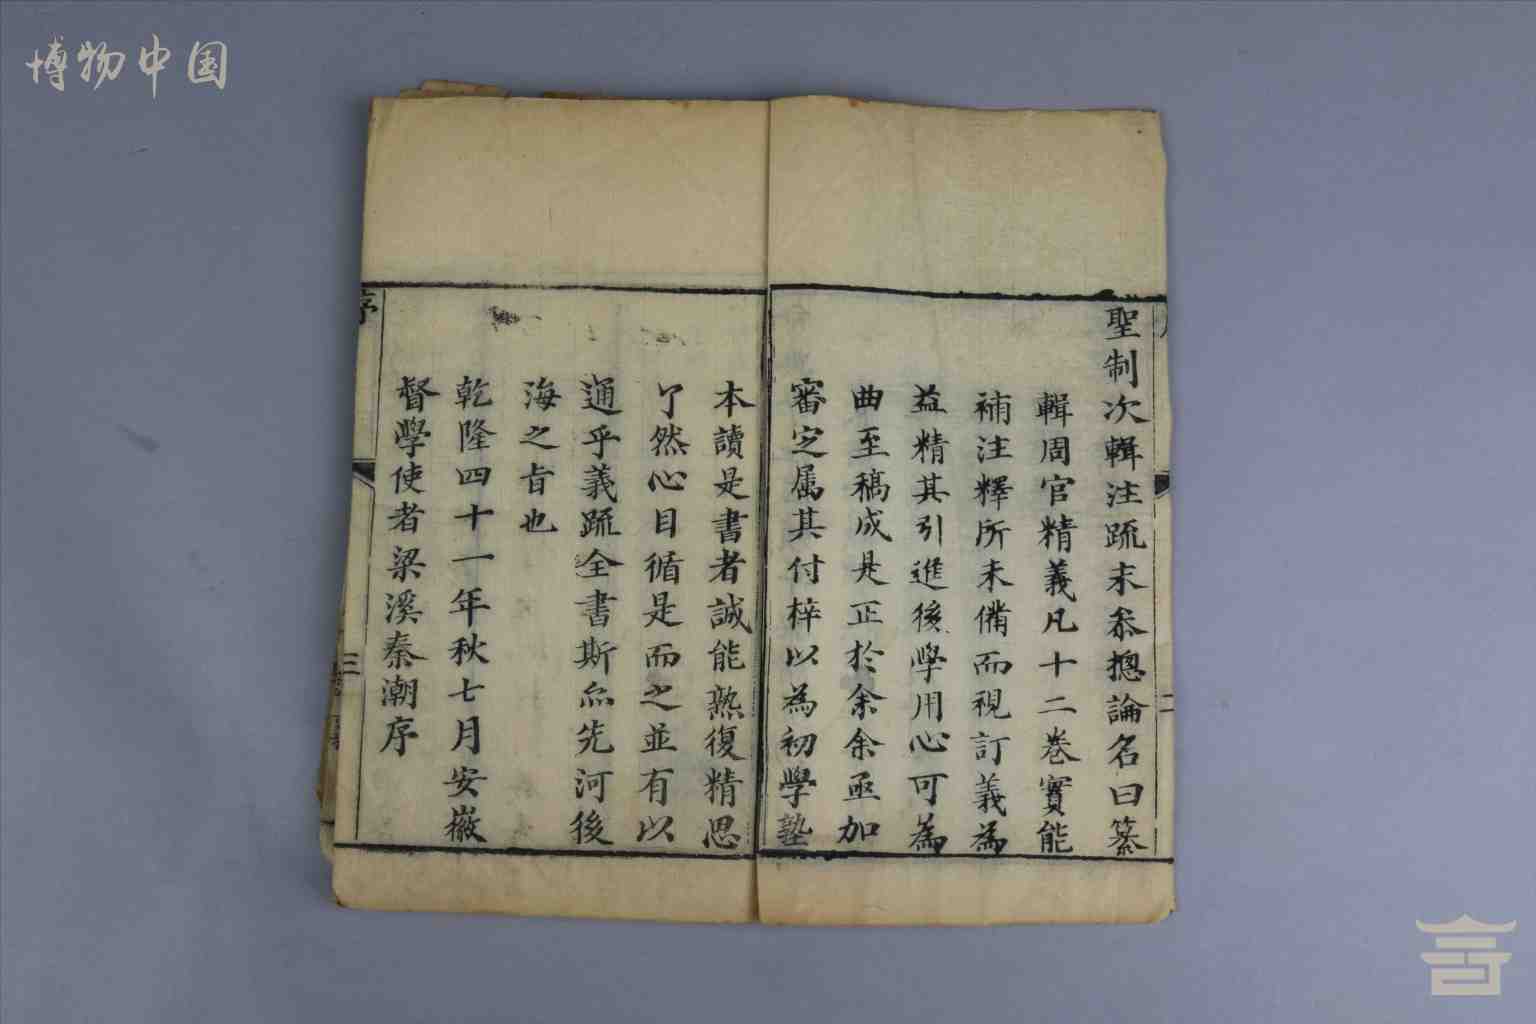 博物中国
聖制次輯注疏末叅摠論名曰纂
輯周官精義凡十二巻實能
補注釋所未備而視訂義為
益精其引進後學用心可為
曲至稿成是正於余余亟加
審定属其付梓以為初學塾
本讀是書者誠能熟復精思
了然心目循是而之並有以
通乎義疏全書斯亦先河後
海之旨也
乾隆四十一年秋七月安徽
督學使者梁溪秦潮序
序
三